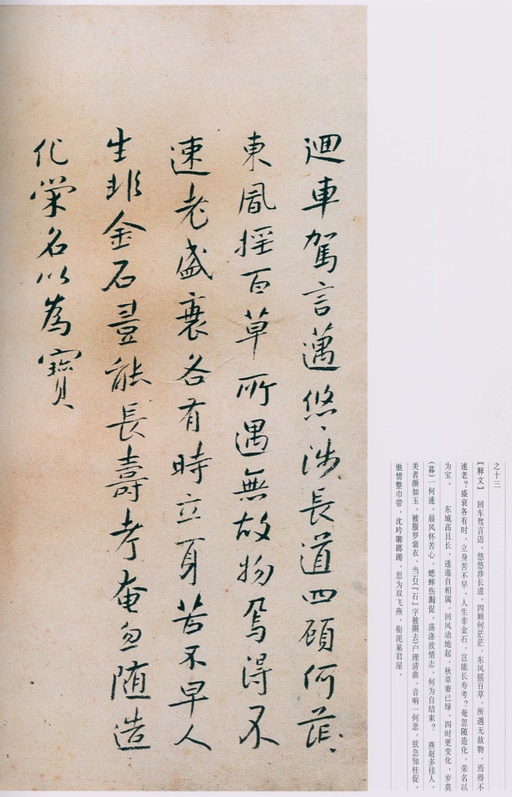 迴車駕言邁悠〻涉長道四顧何茫〻
東風摇百草所遇無故物焉得不
速老盛衰各有時立身苦不早人
生非金石豈能長壽考奄忽随造
化榮名以為寶
之十三
【释文】 回车驾言迈，悠悠涉长道。四顾何茫茫，东风摇百草。所遇无故物，焉得不
速老？盛衰各有时，立身苦不早。人生非金石，岂能长寿考？奄忽随造化，荣名以
为宝。 东城高且长，逶迤自相属。回风动地起，秋草萋已绿。四时更变化，岁莫
（暮）一何速。晨风怀苦心，蟋蟀伤局促。荡涤放情志，何为自结束？ 燕赵多佳人，
美者颜如玉。被服罗裳衣，当石（『石』字被圈去）户理清曲。音响一何悲，弦急知柱促。
驰情整巾带，沈吟聊踯躅。思为双飞燕，衔泥巢君屋。